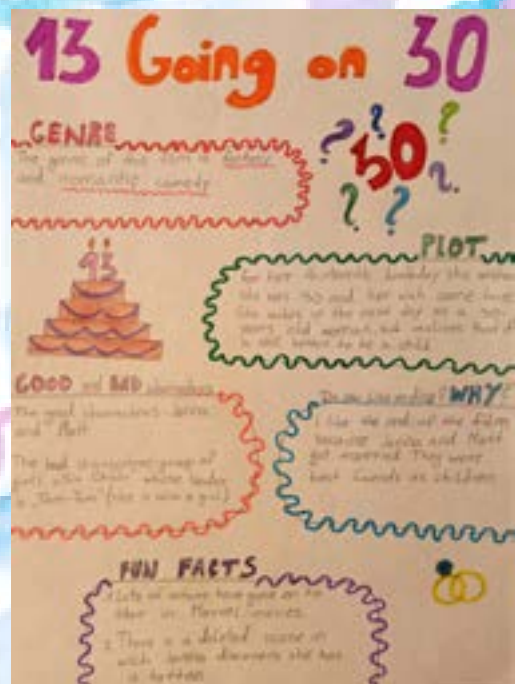 13 Going on 30
GENRE
The genre of this film is fantasy
and romantic comedy
? ? 30 ? ? ? ?
13
PLOT
For her thirteenth birthday she wishes
she was 30 and her wish came true.
She wakes up the next day as a 30
years old woman, but realises that it
is still better to be a child
GOOD and BAD characters
The good characters Jenna
and Matt
The bad characters group of
girls "Six Chicks" whose leader
is "Tom-Tom" (she is a girl)
Do you like ending? WHY?
I like the end of the film
because Jenna and Matt
got married They were
best friends as children
FUN FACTS
1. Lots of actors have gone on to
star in Marvel movies
2. There is a deleted scene in
wich Jenna discovers she has
a